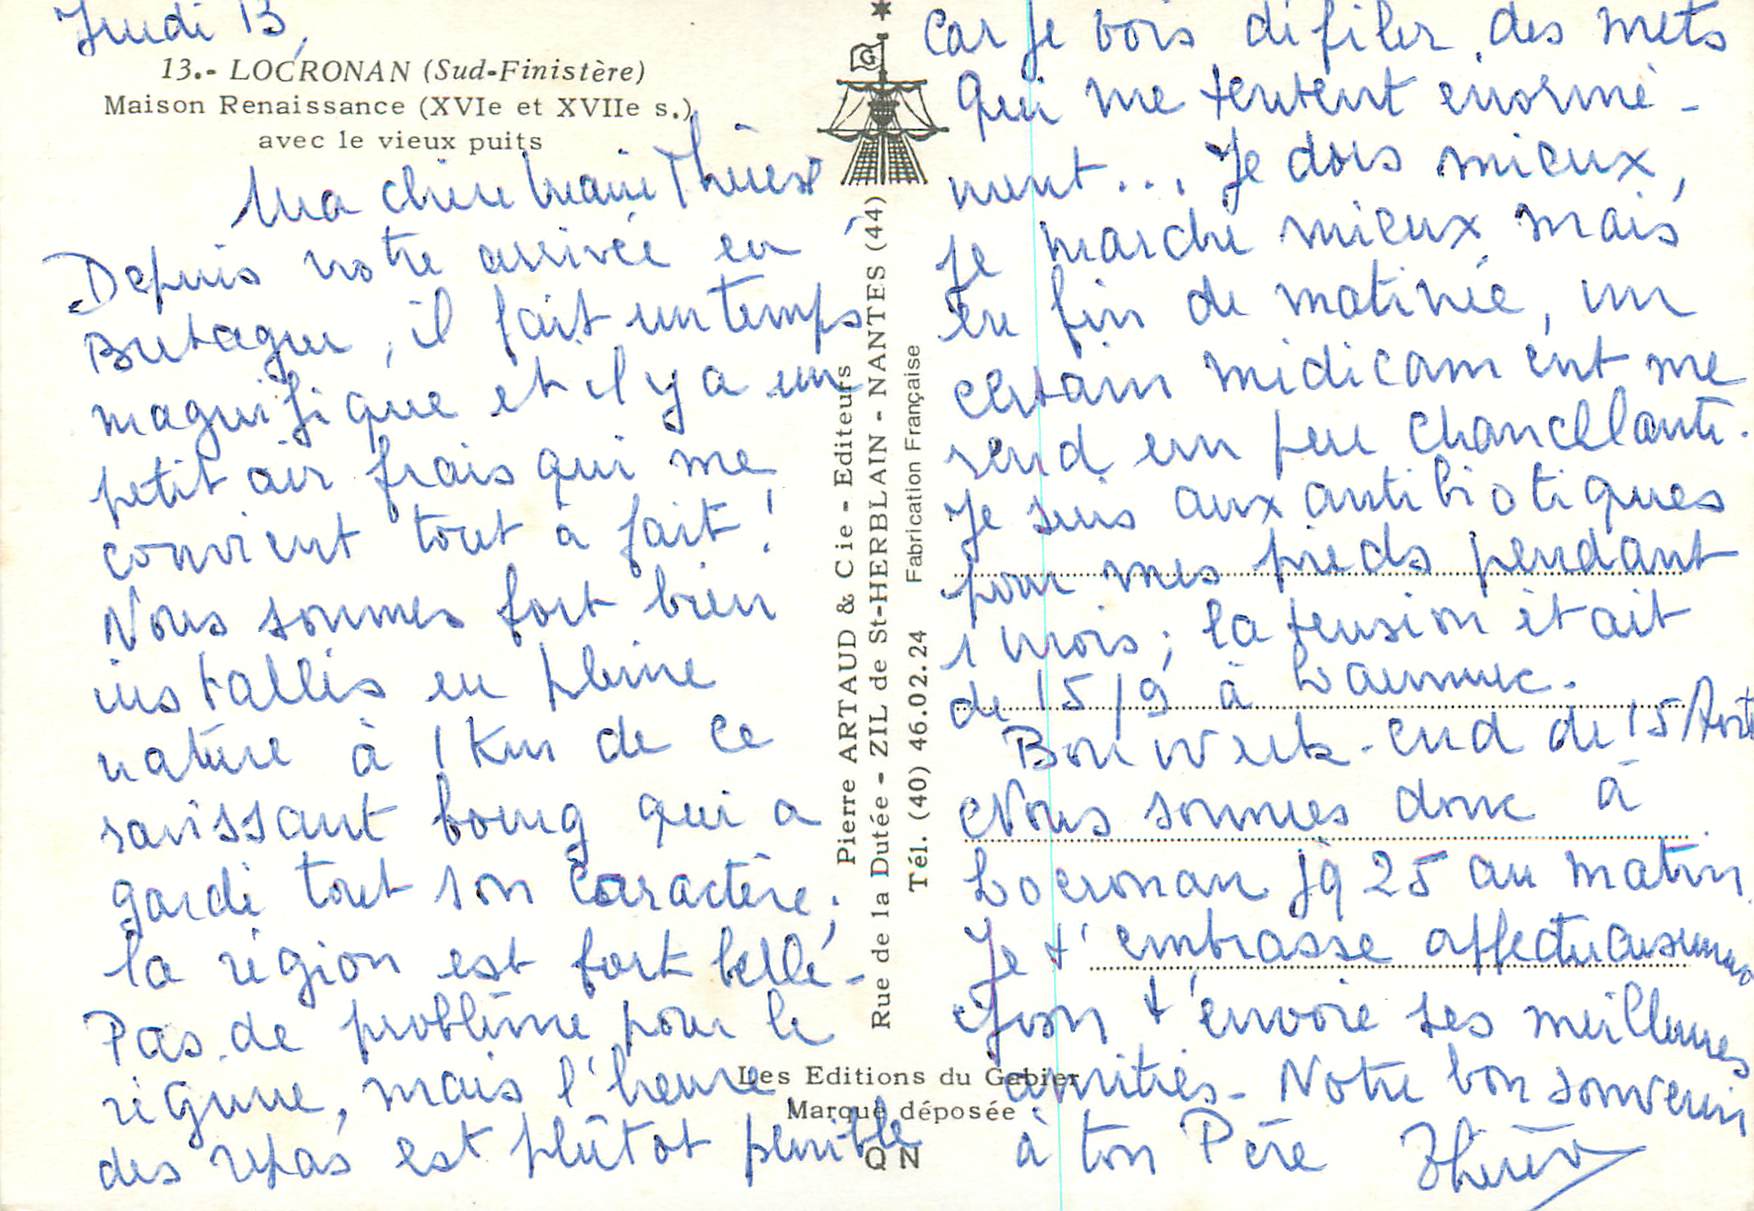 Jeudi 13,
13.- LOCRONAN (Sud-Finistère)
Maison Renaissance (XVIe et XVIIe s.)
avec le vieux puits
Ma chère Marie Thérèse
Depuis notre arrivée en
Bretagne, il fait un temps
magnifique et il y a un
petit air frais qui me
convient tout à fait !
Nous sommes fort bien
installés en pleine
nature à 1 km de ce
ravissant bourg qui a
gardé tout son caractère ;
la région est fort belle -
Pas de problème pour le
régime, mais l'heure
des repas est plutôt pénible
Pierre ARTAUD & Cie - Editeurs
Rue de la Dutée - ZIL de St-HERBLAIN - NANTES (44)
Tél. (40) 46.02.24 Fabrication Française
G
Les Editions du Gabier
Marque déposée
QN
Car je vois défiler des mets
qui me tentent énormé -
ment... Je dors mieux,
je marche mieux mais
en fin de matinée, un
certain médicament me
rend un peu chancelante.
Je suis aux antibiotiques
pour mes pieds pendant
1 mois ; la tension était
de 15/9 à
Bon week-end du 15 Août
Nous sommes donc à
Locronan jq 25 au matin.
Je t'embrasse affectueusement
t'envoie ses meilleures
amitiés - Notre bon souvenir
à ton Père